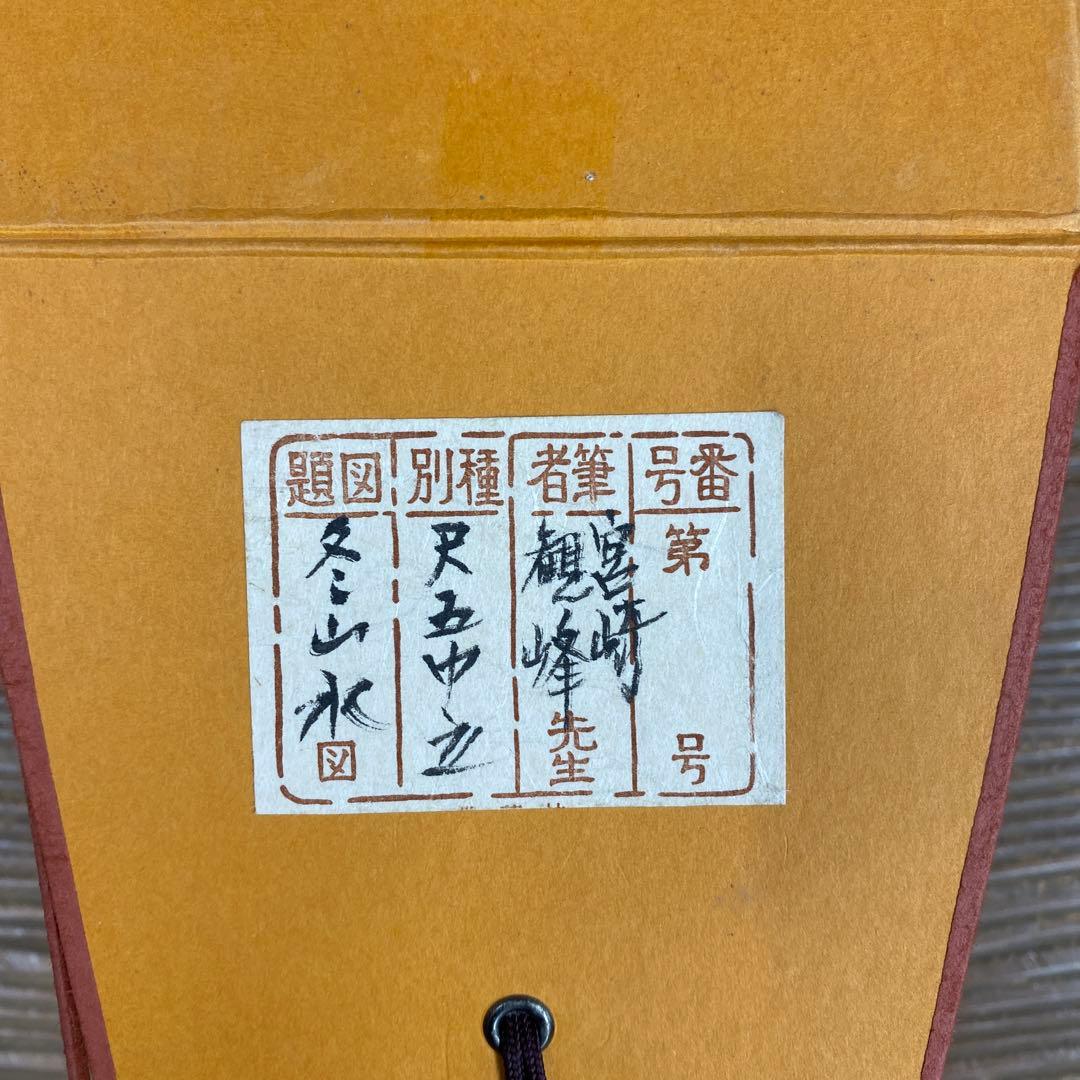 番号
第 号
筆者
宮崎
観峰先生
種別
尺五中立
図題
冬山水図